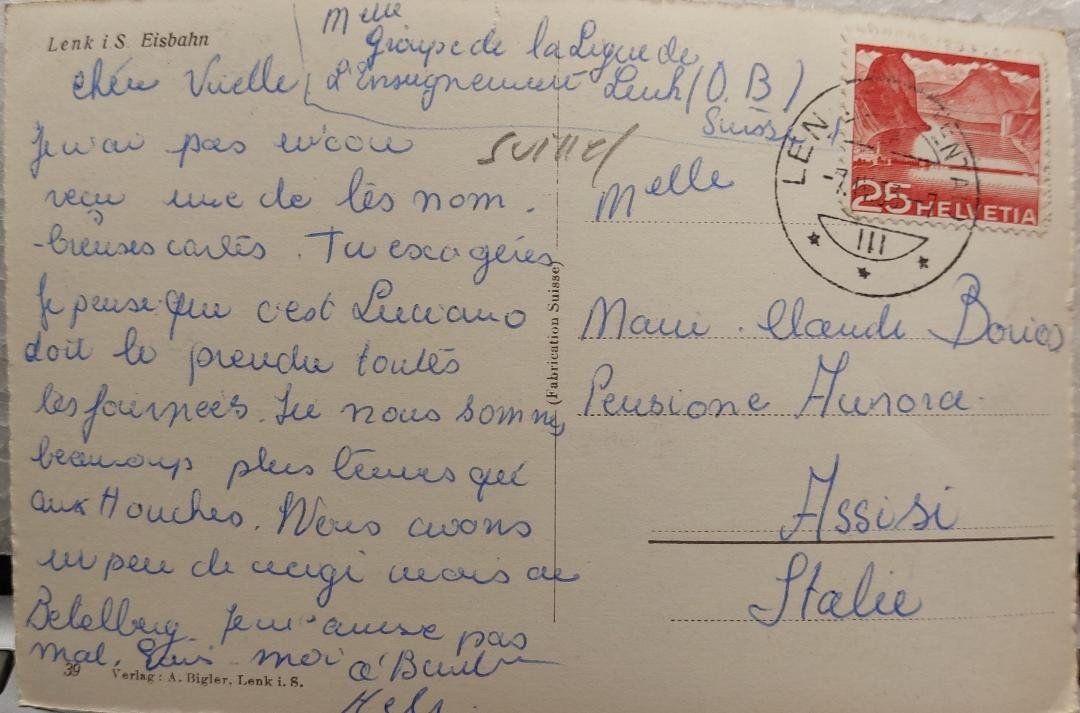 Lenk i S. Eisbahn
Melle
Groupe de la Ligue de
L'Enseignement Lenk (O.B)
Suisse
chère Vielle
Je n'ai pas encore
reçu une de tes nom-
-breuses cartes. Tu exagères
Je pense que c'est Luciano
doit te prendre toutes
les journées. Ici nous sommes
beaucoup plus tenues que
aux Houches. Nous avons
un peu de neige mais au
Betelberg. Je m'amuse pas
mal. moi à
39 Verlag: A. Bigler, Lenk i. S.
(Fabrication Suisse)
LENK
III
25 HELVETIA
Melle
Marie. Claude
Pensione Aurora.
Assisi
Italie